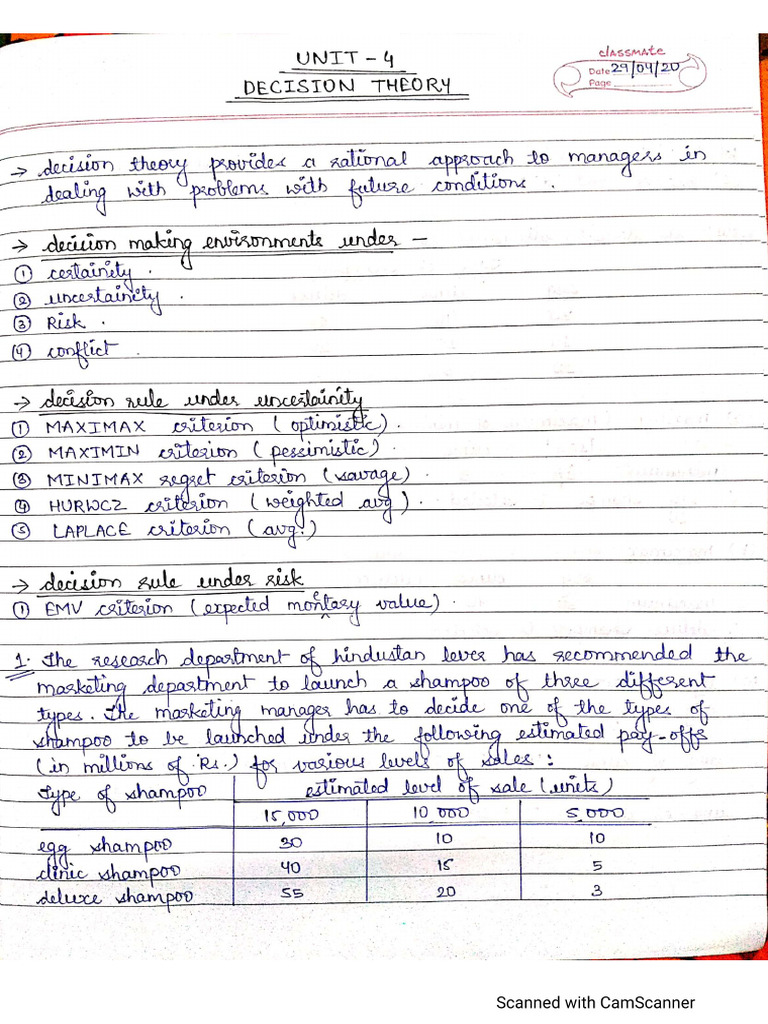 UNIT - 4
DECISION THEORY
classmate
Date 29/04/20
Page
→ decision theory provides a rational approach to managers in
dealing with problems with future conditions.
→ decision making environments under -
① certainity.
② uncertainity.
③ Risk.
④ conflict.
→ decision rule under uncertainity
① MAXIMAX criterion (optimistic).
② MAXIMIN criterion (pessimistic).
③ MINIMAX regret criterion (savage).
④ HURWCZ criterion (weighted avg).
⑤ LAPLACE criterion (avg.)
→ decision rule under risk
① EMV criterion (expected monetary value).
1. The research department of hindustan lever has recommended the
marketing department to launch a shampoo of three different
types. The marketing manager has to decide one of the types of
shampoo to be launched under the following estimated pay-offs
(in millions of Rs.) for various levels of sales:
Type of shampoo estimated level of sale (units)
15,000 10,000 5,000
egg shampoo 30 10 10
clinic shampoo 40 15 5
deluxe shampoo 55 20 3
Scanned with CamScanner